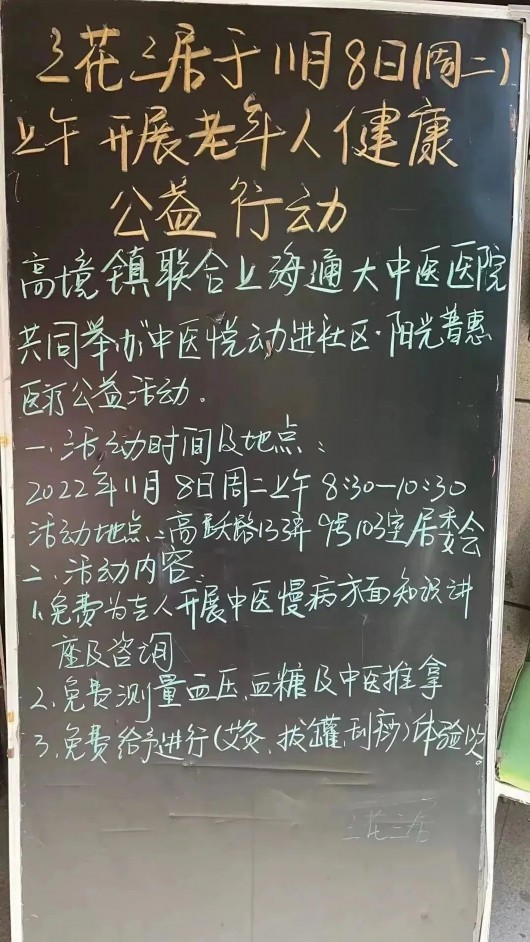 三花三居于11月8日(周二)
上午开展老年人健康
公益行动
高境镇联合上海通大中医医院
共同举办中医悦动进社区·阳光普惠
医疗公益活动。
一、活动时间及地点：
2022年11月8日周二上午8:30—10:30
活动地点：高跃路133弄9号103室居委会
二、活动内容：
1、免费为老人开展中医慢病方面知识讲
座及咨询
2、免费测量血压、血糖及中医推拿
3、免费给予进行(艾灸、拔罐、刮痧)体验
三花三居